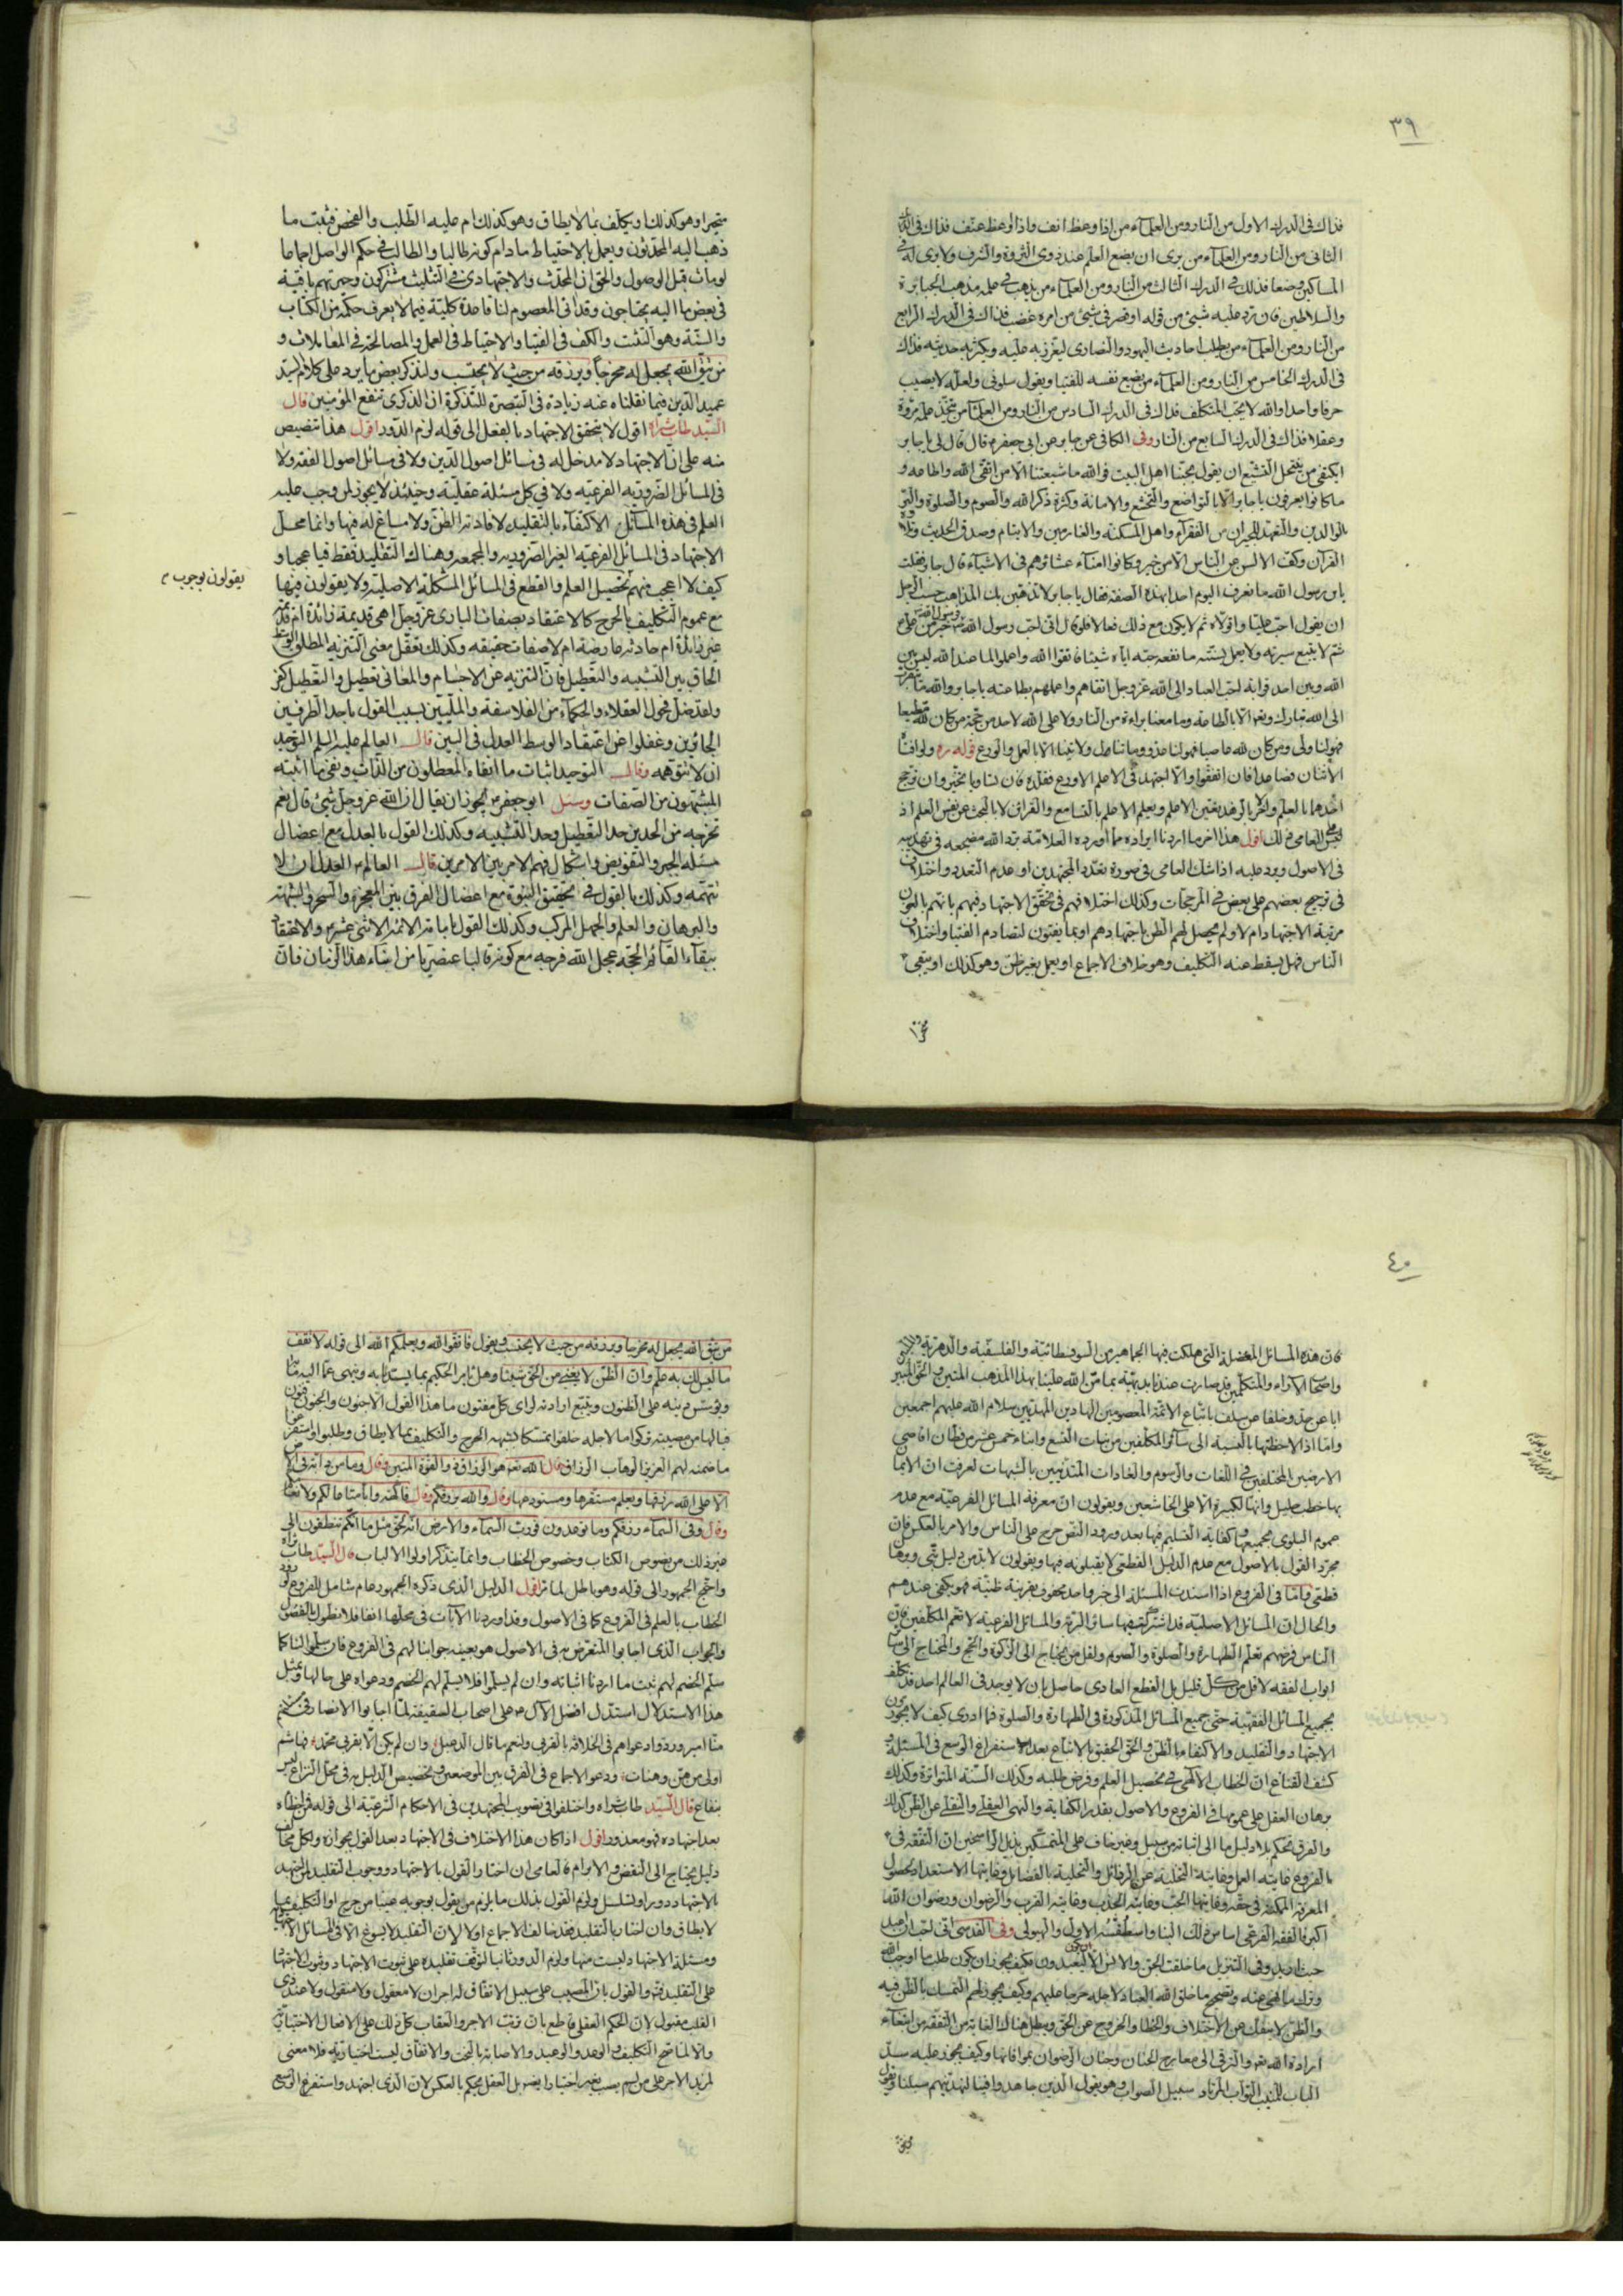 ٣٩
فذاك فى الدرك الاول من النار ومن العلمآء من اذا وعظ انف واذا وعظ عنف فذاك فى الدرك
الثانى من النار ومن العلمآء من يرى ان يضع العلم عند ذوى الثروة والشرف ولا يرى له فى
المساكين وضعا فذلك فى الدرك الثالث من النار ومن العلمآء من يذهب فى علمه مذهب الجبابرة
والسلاطين فان رد عليه شيئ من قوله او قصر فى شيئ من امره غضب فذاك فى الدرك الرابع
من النار ومن العلمآء من يطلب احاديث اليهود والنصارى ليغزر به علمه ويكثر به حديثه فذاك
فى الدرك الخامس من النار ومن العلمآء من يضع نفسه للفتيا ويقول سلونى ولعله لا يصيب
حرفا واحدا والله لا يحب المتكلفين فذاك فى الدرك السادس من النار ومن العلمآء من يتخذ علمه مروة
وعقلا فذاك فى الدرك السابع من النار وفى الكافى عن جابر عن ابى جعفر قال قال لى يا جابر
ايكتفى من ينتحل التشيع ان يقول بحبنا اهل البيت فوالله ما شيعتنا الا من اتقى الله واطاعه و
ما كانوا يعرفون يا جابر الا بالتواضع والتخشع والامانة وكثرة ذكر الله والصوم والصلوة والبر
بالوالدين والتعهد للجيران من الفقرآء واهل المسكنة والغارمين والايتام وصدق الحديث وتلاوة
القرآن وكف الالسن عن الناس الا من خير وكانوا امناء عشائرهم فى الاشيآء قال جابر فقلت
يا بن رسول الله ما نعرف اليوم احدا بهذه الصفة فقال يا جابر لا تذهبن بك المذاهب حسب الرجل
ان يقول احب عليا واتولاه ثم لا يكون مع ذلك فعالا فلو قال انى احب رسول الله فرسول الله خير من على
ثم لا يتبع سيرته ولا يعمل بسنته ما نفعه حبه اياه شيئا فاتقوا الله واعملوا لما عند الله ليس بين
الله وبين احد قرابة احب العباد الى الله عز وجل اتقاهم واعملهم بطاعته يا جابر والله ما يتقرب
الى الله تبارك وتعالى الا بالطاعة وما معنا براءة من النار ولا على الله لاحد من حجة من كان لله مطيعا
فهو لنا ولى ومن كان لله عاصيا فهو لنا عدو وما تنال ولايتنا الا بالعمل والورع قوله ره ولو افتاه
الاثنان فصاعدا فان اتفقوا والا اجتهد فى الاعلم الاورع فقلده فان تساويا تخير وان ترجح
احدهما بالعلم والاخر بالزهد تعين الاعلم ويعلم الاعلم بالتسامع والقرائن لا بالبحث عن نفس العلم اذ
ليس على العامى ذلك اقول هذا اخر ما اردنا ايراده مما اورده العلامة برد الله مضجعه فى تهذيبه
فى الاصول ويرد عليه اذا شك العامى فى صورة تعدد المجتهدين او عدم التعدد واختلاف
فى ترجيح بعضهم على بعض فى المرجحات وكذلك اختلافهم فى تحقق الاجتهاد فيهم بانهم بالغون
مرتبة الاجتهاد ام لا ولم يحصل لهم الظن باجتهادهم او بما يفتون لتصادم الفتيا واختلاف
الناس فهل يسقط عنه التكليف وهو خلاف الاجماع او يعمل بغير ظن وهو كذلك او يبقى
متحيرا وهو كذلك او يكلف بما لا يطاق وهو كذلك ام عليه الطلب والفحص فثبت ما
ذهب اليه المحدثون ويعمل بالاحتياط مادام كونه طالبا والطالب فى حكم الواصل اجماعا
لو مات قبل الوصول والحق ان المحدث والاجتهادى فى التثليث مشتركون وحيرتهم باقية
فى بعض ما اليه يحتاجون وقد اتى المعصوم لنا قاعدة كلية فيما لا يعرف حكمه من الكتاب
والسنة وهو التثبت والكف فى الفتيا والاحتياط فى العمل والمصالحة فى المعاملات و
من يتق الله يجعل له مخرجا ويرزقه من حيث لا يحتسب ولنذكر بعض ما يرد على كلام السيد
عميد الدين فيما نقلناه عنه زيادة فى التبصرة للتذكرة ان الذكرى تنفع المؤمنين قال
السيد طاب ثراه اقول لا يتحقق الاجتهاد بالفعل الى قوله لزم الدور اقول هذا تنصيص
منه على ان الاجتهاد لا مدخل له فى مسائل اصول الدين ولا فى مسائل اصول الفقه ولا
فى المسائل الضرورية الفرعية ولا فى كل مسئلة عقلية وحينئذ لا يجوز لمن وجب عليه
العلم فى هذه المسائل الاكتفآء بالتقليد لافادته الظن ولا مساغ له فيها وانما محل
الاجتهاد فى المسائل الفرعية الغير الضرورية والمجمعه وهناك التقليد فقط فيا عجبا و
كيف لا اعجب فهم تحصيل العلم والقطع فى المسائل المشكلة الاصلية ولا يقولون فيها
يقولون بوجوب
مع عموم التكليف بالحرج كالاعتقاد بصفات البارى عز وجل اهى قديمة زائدة ام قديمة
غير زائدة ام حادثه عارضة ام لا صفات حقيقه وكذلك تعقل معنى التنزيه المطلق
الحاق بين التشبيه والتعطيل فان التنزيه عن الاجسام والمعانى تعطيل والتعطيل كفر
ولقد ضل فحول العقلاء والحكمآء من الفلاسفة والمليين بسبب القول باحد الطرفين
الجائرين وغفلوا عن اعتقاد الوسط العدل فى البين قال العالم عليه السلم التوحيد
ان لا تتوهمه وقال التوحيد اثبات ما انفاه المعطلون من الذات ونفى ما اثبته
المشبهون من الصفات وسئل ابو جعفر ايجوز ان يقال ان الله عز وجل شيئ قال نعم
تخرجه من الحدين حد التعطيل وحد التشبيه وكذلك القول بالعدل مع اعضال
مسئلة الجبر والتفويض واشكال فهم الامر بين الامرين قال العالم العدل ان لا
تتهمه وكذلك القول فى تحقيق النبوة مع اعضال الفرق بين المعجزة والسحر والشبهة
والبرهان والعلم والجهل المركب وكذلك القول بامامة الائمة الاثنى عشر والاعتقاد
ببقآء القآئم الحجة عجل الله فرجه مع كونه قالبا عنصريا من ابناء هذا الزمان فان
٤٠
فان هذه المسائل المعضلة التى هلكت فيها الجماهير من السوفسطائية والفلسفية والدهرية
واصحاب الاراء والمتكلمين قد صارت عندنا بديهية بما من الله علينا بهذا المذهب المتين والحق المبين
ابا عن جد وخلفا عن سلف باتباع الائمة المعصومين الهادين المهديين سلام الله عليهم اجمعين
واما اذا لاحظتها بالنسبة الى سآئر المكلفين من بنات التسع وابناء خمس عشر من قطان اقاصى
الارضين المختلفين فى اللغات والرسوم والعادات المتدينين بالشبهات لعرفت ان الايمان
بها خطب جليل وانها لكبيرة الا على الخاشعين ويقولون ان معرفة المسائل الفرعية مع عدم
عموم البلوى بجميعها وكفاية التسليم فيها بعد ورود النص حرج على الناس والامر بالعكس فان
مجرد القول بالاصول مع عدم الدليل القطعى لا يقبلونه فيها ويقولون لابد من دليل
قطعى واما فى الفروع اذا اسندت المسئلة الى خبر واحد محفوف بقرينة ظنية فهو يكفى عندهم
والحال ان المسائل الاصلية قد اشترك فيها والمسائل الفرعية لا تعم المكلفين فان
الناس فرضهم تعلم الطهارة والصلوة والصوم ولقل من يحتاج الى الزكوة والحج والمحتاج الى سآئر
ابواب الفقه لاقل من كل قليل بل القطع العادى حاصل بان لا يوجد فى العالم احد قد كلف
بجميع المسائل الفقهية حتى جميع المسائل المذكورة فى الطهارة والصلوة فما ادرى كيف لا يجوزون
الاجتهاد والتقليد والاكتفاء بالظن والحق الحقيق بالاتباع بعد استفراغ الوسع فى المسئلة و
كشف القناع ان الخطاب الالهى فى تحصيل العلم وفرض طلبه وكذلك السنة المتواترة وكذلك
برهان العقل على عمومها فى الفروع والاصول بقدر الكفاية والنهى العقلى والنقلى عن الظن كذلك
والفرق تحكم بلا دليل ما الى اثباته من سبيل وغير خاف على المتمسكين بذيل الراسخين ان التفقه فى
بالفروع غايته العمل وغاية التخلية عن الرذائل والتحلية بالفضائل وغايتها الاستعداد لحصول
المعرفة الممكنة فى حقه وغايتها الحب وغايته الجذب وغايته القرب والرضوان ورضوان الله
اكبر فالفقه الفرعى اساس ذلك البنا واسطقسه الاول والهيولى وفى القدسى انى احب ان اعبد
حيث اريد وفى التنزيل ما خلقت الجن والانس الا ليعبدون فكيف يجوز ان يكون طلب ما اوجب الله
وترك ما نهى عنه وتصحيح ما خلق الله العباد لاجله حرجا عليهم وكيف يجوز لهم التمسك بالظن فيه
والظن لا ينفك عن الاختلاف والخطا والخروج عن الحق ويبطل هناك الغاية من التفقه من ابتغآء
ارادة الله تعم والترقى الى معارج الجنان وجنان الرضوان بموافاتها وكيف يجوز عليه سد
الباب للمنيب التواب المرتاد سبيل الصواب وهو يقول الذين جاهدوا فينا لنهدينهم سبلنا ويقول
من يتق الله يجعل له مخرجا ويرزقه من حيث لا يحتسب ويقول فاتقوا الله ويعلمكم الله الى قوله لا تقف
ما ليس لك به علم وان الظن لا يغنى من الحق شيئا وهل يامر الحكيم بما يستدل به وينهى عما اليه
ويؤسس دينه على الظنون ويتبع ارادته لراى كل مفتون ما هذا القول الا جنون والجنون فنون
فيا لها من مصيبة تركوا ما لاجله خلقوا تمسكا بشبهة الحرج والتكليف بما لا يطاق وطلبوا
ما ضمنه لهم العزيز الوهاب الرزاق قال الله تعم هو الرزاق ذو القوة المتين وقال وما من دابة فى الارض
الا على الله رزقها ويعلم مستقرها ومستودعها وقال والله يرزقكم وقال فاكهة وابا متاعا لكم ولانعامكم
وقال وفى السمآء رزقكم وما توعدون فورب السمآء والارض انه لحق مثل ما انكم تنطقون الى
غير ذلك من نصوص الكتاب وخصوص الخطاب وانما يتذكر اولوا الالباب قال السيد طاب ثراه
واحتج الجمهور الى قوله وهو باطل لما مر اقول الدليل الذى ذكره الجمهور عام شامل للفروع
الخطاب بالعلم فى الفروع كما فى الاصول وقد اوردنا الآيات فى محلها انفا فلا نطول بالفضول
والجواب الذى اجابوا المتعرض به فى الاصول هو بعينه جوابنا لهم فى الفروع فان سلموا لنا كما
سلم الخصم لهم ثبت ما اردنا اثباته وان لم يسلموا فلا يسلم لهم الخصم ودعواه على حالها وبمثل
هذا الاستدلال استدل افضل الآل على اصحاب السقيفة لما اجابوا الانصار فى
منا امير وردوا دعواهم فى الخلافة بالقربى ولنعم ما قال الدعبل وان لم يكن الا بقربى محمد فهاشم
اولى من هن وهنات ودعوا الاجماع فى الفرق بين الموضعين وتخصيص الدليل به فى محل النزاع ليس
بنفاع قال السيد طاب ثراه واختلفوا فى تصويب المجتهدين فى الاحكام الشرعية الى قوله فمن اخطاه
بعد اجتهاده فهو معذور اقول اذا كان هذا الاختلاف فى الاجتهاد بعد القول بجوازه ولكل مخالف
دليل يحتاج الى النقض والابرام فالعامى ان اختار القول بالاجتهاد ووجوب التقليد للمجتهد
بالاجتهاد دورا وتسلسل ولزم القول بذلك ما يلزم من يقول بوجوبه عينيا من حرج او التكليف بما
لا يطاق وان اختار بالتقليد فقد خالف الاجماع اولا لان التقليد لا يسوغ الا فى المسائل الاجتهادية
ومسئلة الاجتهاد ليست منها ولزم الدور ثانيا لتوقف تقليده على ثبوت الاجتهاد وثبوت الاجتهاد
على التقليد فيه والقول بان المصيب على سبيل الاتفاق له اجران لا معقول ولا منقول ولا عند ذى
القلب مقبول لان الحكم العقلى قاطع بان ترتب الاجر والعقاب كل ذلك على الافعال الاختيارية
والا لما صح التكليف والوعد والوعيد والاصابة بالبخت والاتفاق ليست اختيارية فلا معنى
لمزيد الاجر على من لم يصب بغير اختياره بل العقل يحكم بالعكس لان الذى اجتهد واستفرغ الوسع